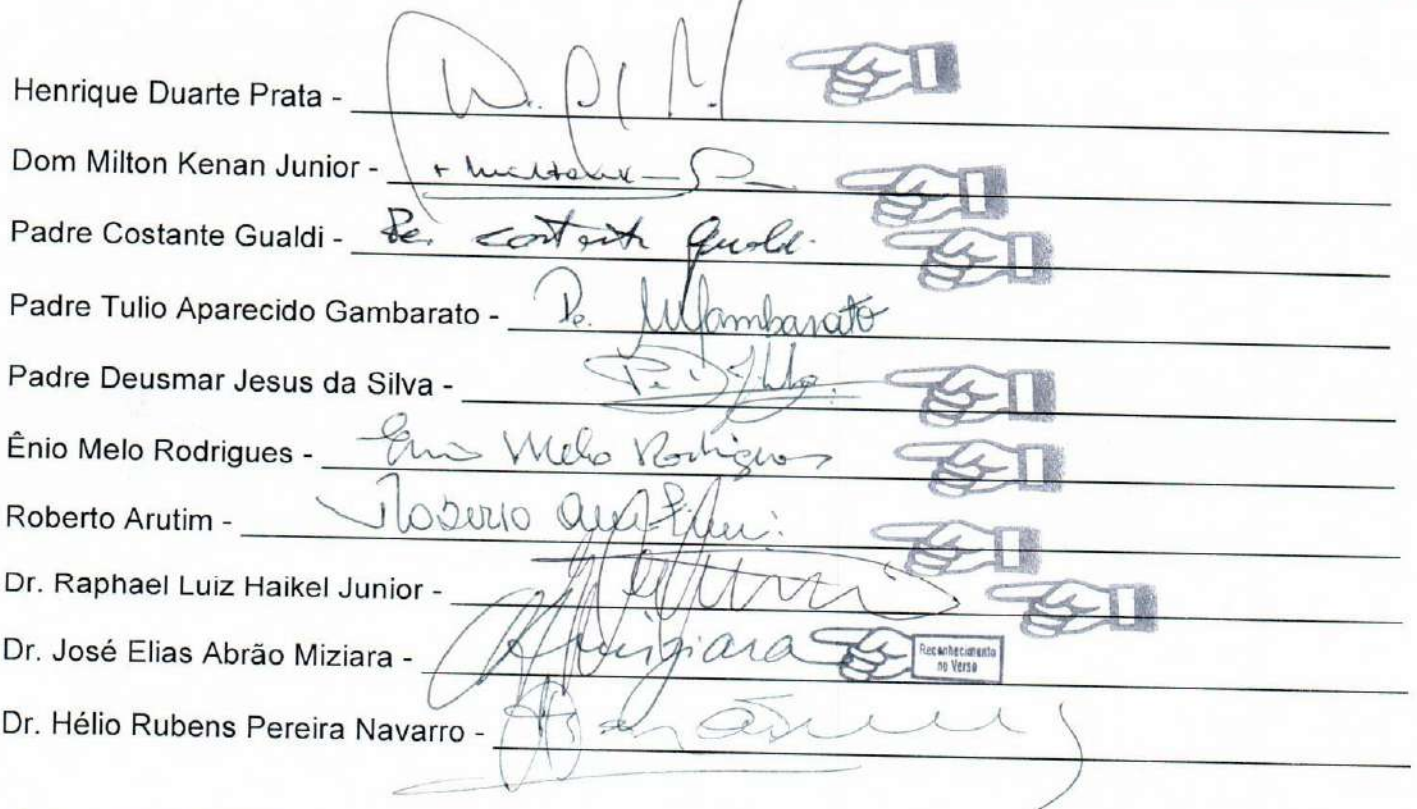 Henrique Duarte Prata -
Dom Milton Kenan Junior -
Padre Costante Gualdi - Pe. Costante Gualdi
Padre Tulio Aparecido Gambarato - Pe. Gambarato
Padre Deusmar Jesus da Silva - Pe.
Ênio Melo Rodrigues - Enio Melo Rodrigues
Roberto Arutim - Roberto
Dr. Raphael Luiz Haikel Junior -
Dr. José Elias Abrão Miziara - Miziara Reconhecimento
no Verso
Dr. Hélio Rubens Pereira Navarro -